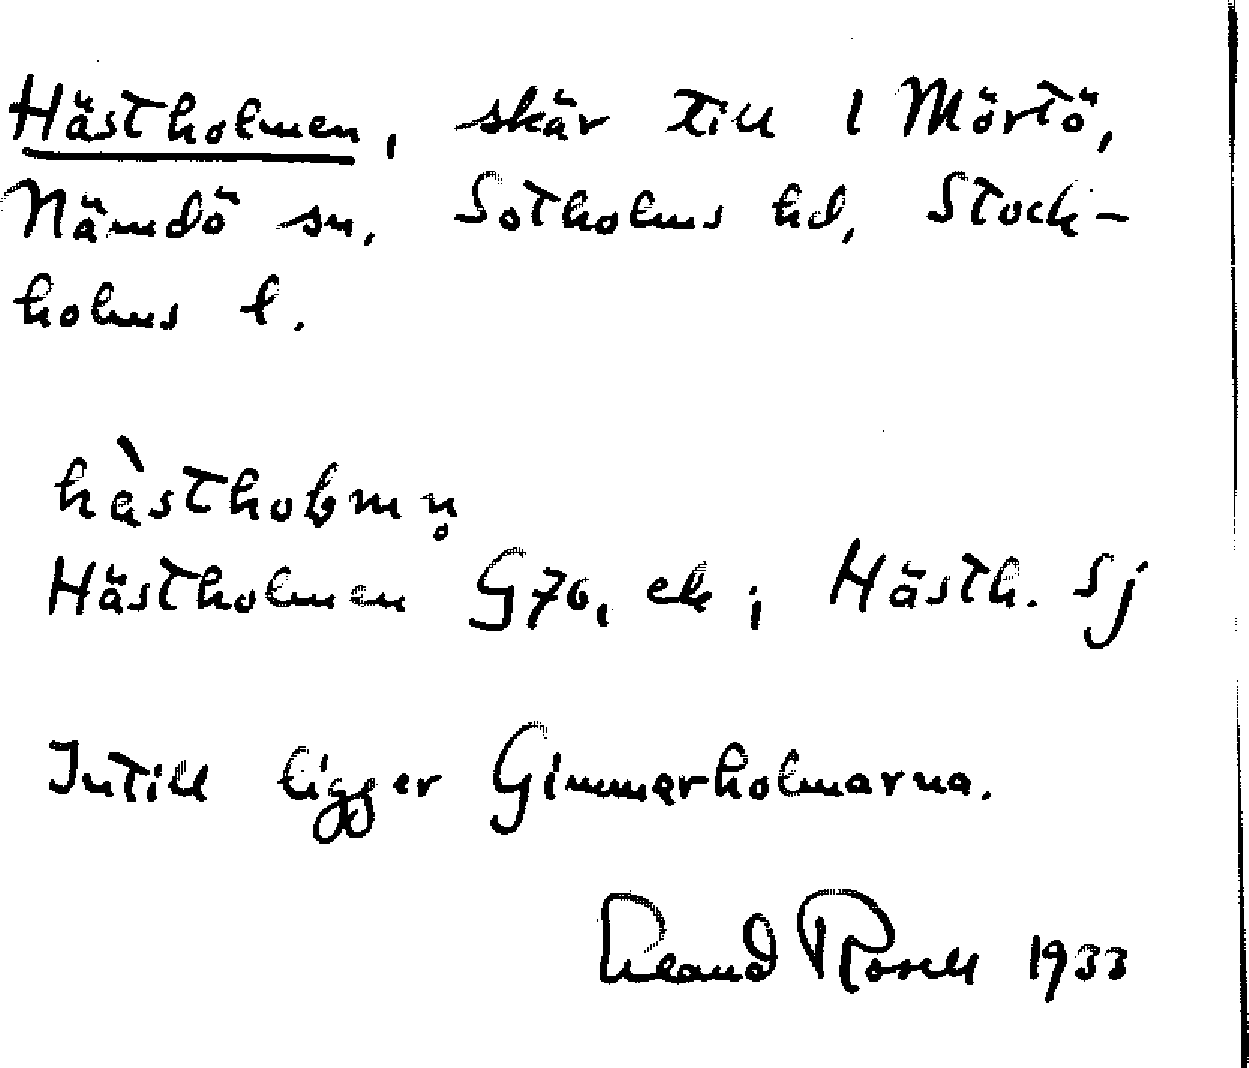 Hästholmen, skär till 1 Mörtö,
Nämdö sn, Sotholms hd, Stock-
holms l.
hàstholmn̥
Hästholmen G70, ek; Hästh. Sj
Intill ligger Gimmarholmarna.
Rosell 1933